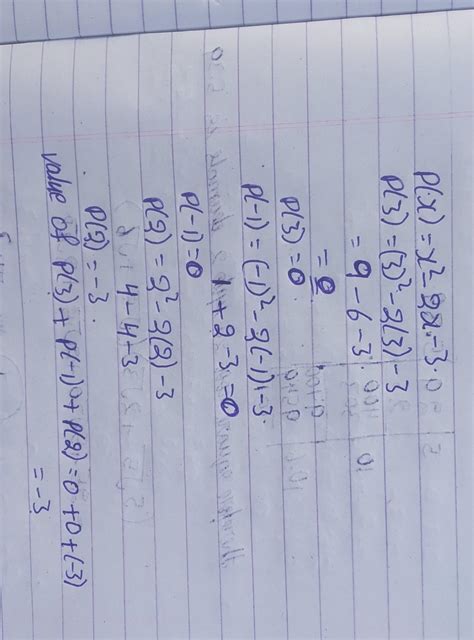 P(x) = x² - 2x - 3.
P(3) = (3)² - 2(3) - 3
= 9 - 6 - 3.
= 0
P(3) = 0
P(-1) = (-1)² - 2(-1) - 3.
1 + 2 - 3 = 0
P(-1) = 0
P(2) = 2² - 2(2) - 3
4 - 4 + 3
P(2) = -3.
value of P(3) + P(-1) + P(2) = 0 + 0 + (-3)
= -3